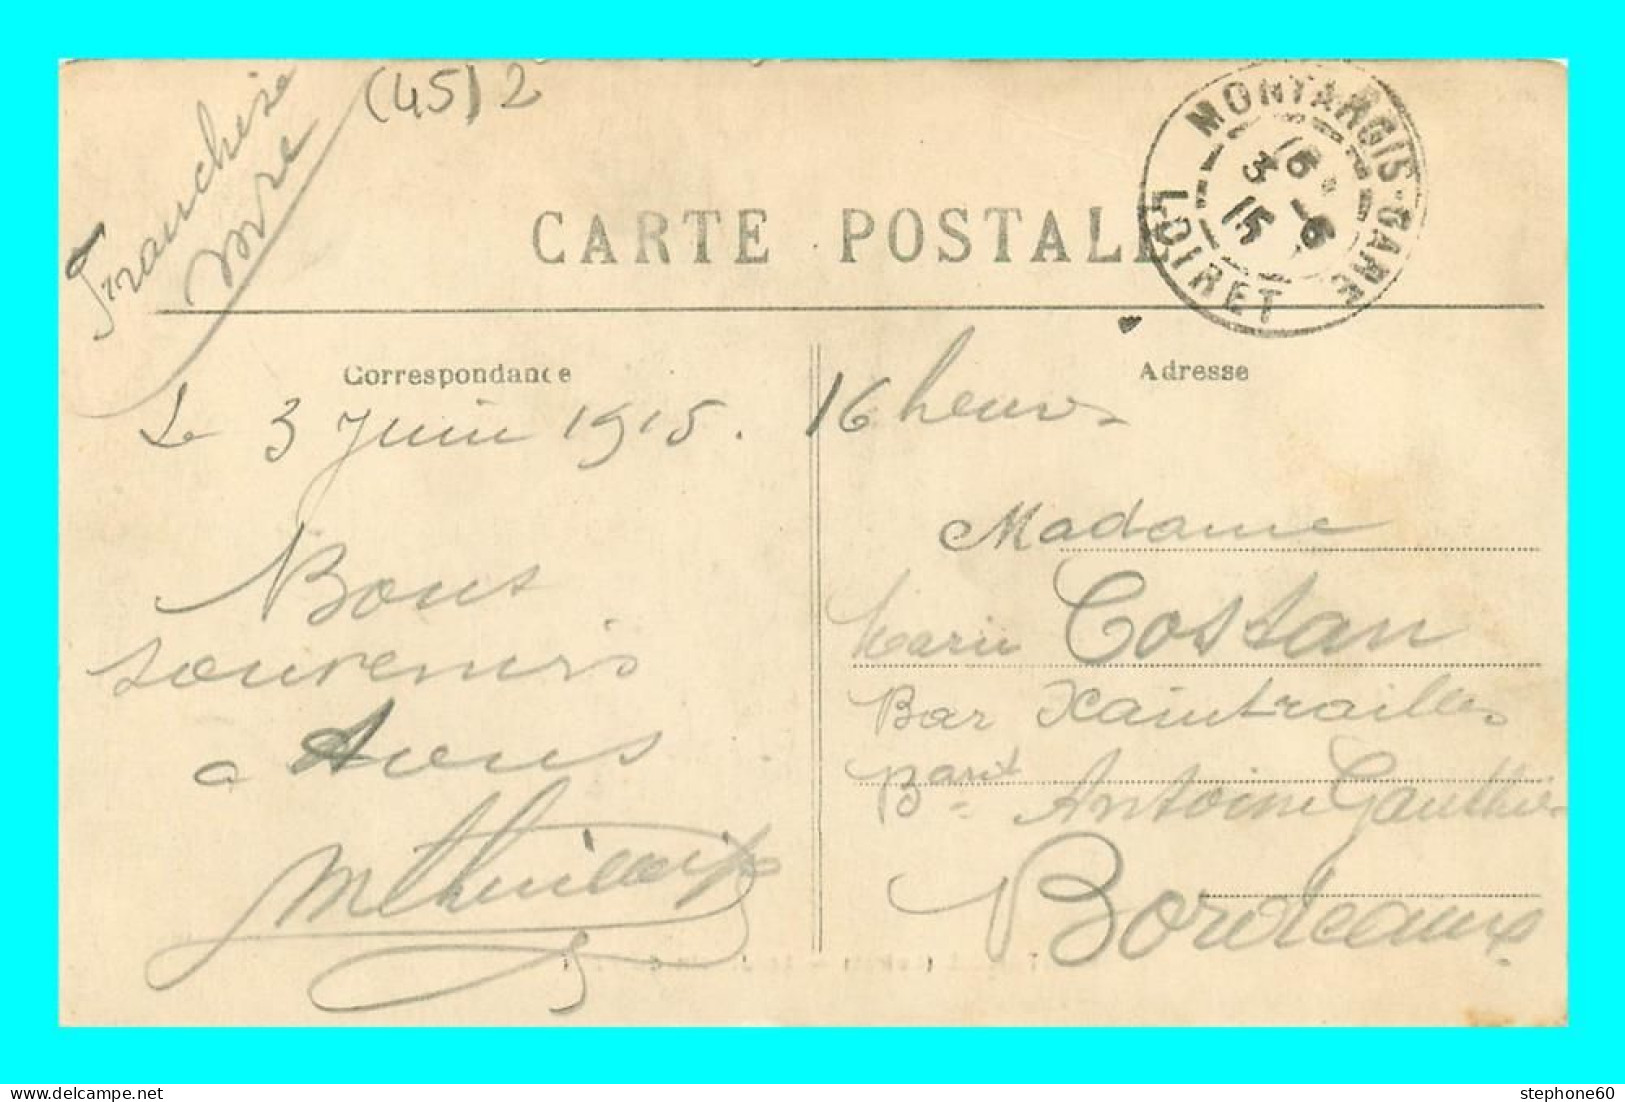 Franchise
(45) 2
CARTE POSTALE
MONTARGIS-GARE
LOIRET
16
3 -6
15
Correspondance
Adresse
Le 3 Juin 1915. 16 heures
Bons
souvenirs
a tous
Madame
Marie Costan
Bar Xaintrailles
Antoine Gauthier
Bordeaux
delcampe.net
stephone60